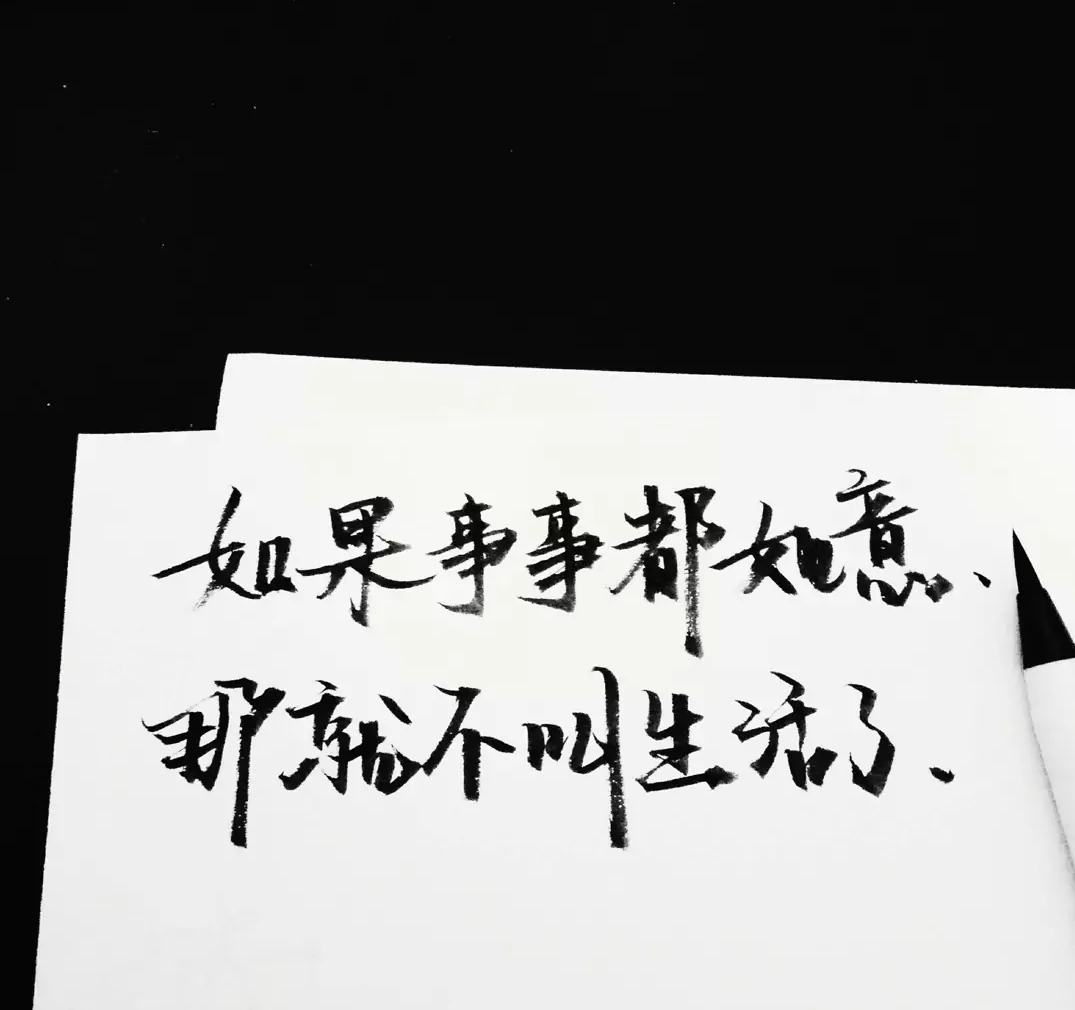 如果事事都如意、
那就不叫生活了、